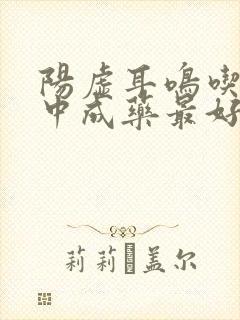 陽虛耳鳴喫
中成藥最好
莉莉盖尔